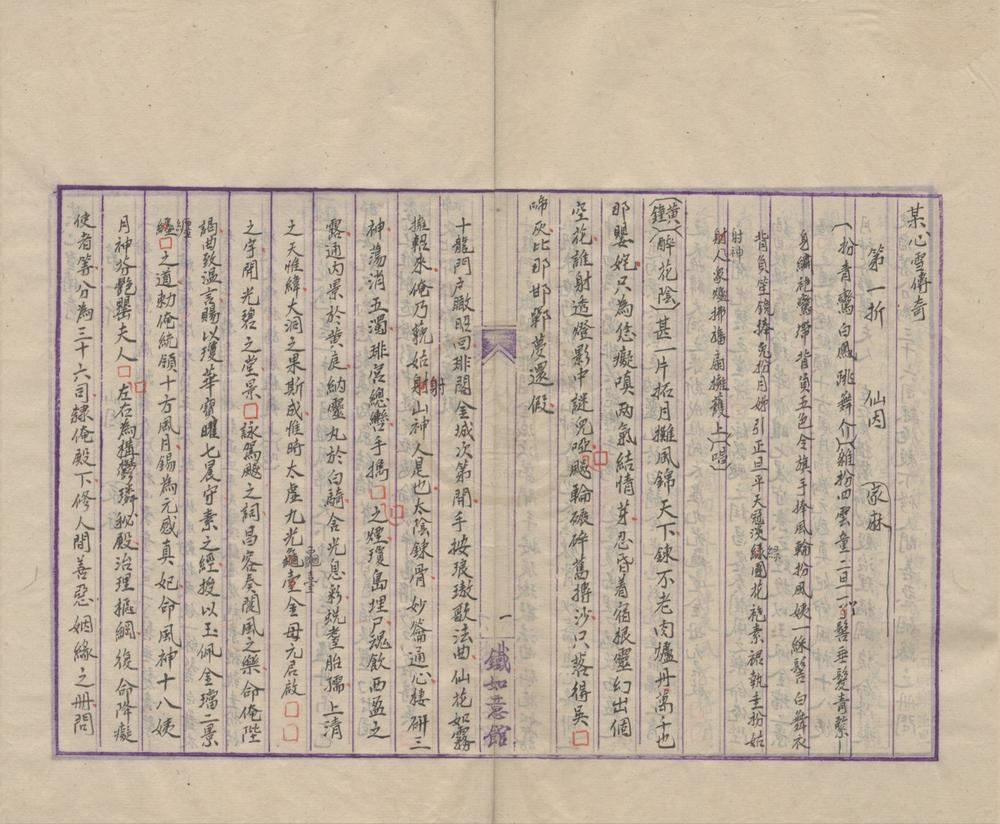 某心雪傳奇
第一折 仙因 家麻
(扮青鸞白鳳跳舞介)(雜扮四雲童二旦一髻垂髮青繫一
身繡袍鸞帶背負五色令旗手捧風輪扮風姨一綵髻白舞衣
背負坐鏡捧兔扮月姊引正旦平天冠淡綠團花袍素裙執圭扮姑
射神人衆爐拂旛扇擁護上)(唱)
(黃鐘)(醉花陰)甚一片拓月攤風錦天下鍊不老肉爐丹萬千也
那嬰姹只為恁癡嗔兩氣結情芽忍昏着宿根靈幻出個
空花誰射透燈影中謎兒啞颷輪碾碎舊摶沙只落得吳□
啼灰比那邯鄲夢還假
十龍門戶瞰昭回琲闕金城次第開手按琅璈歌法曲仙花如霧
擁輕來俺乃藐姑射山神人是也太陰鍊骨妙籥通心棲研三
神蕩消五濁琲宮總轡手攜□之煙瓊島埋尸魂飲西盈之
露通內景於黃庭納靈丸於白騎含光息影蛻耋胎孺上清
之天惟緯大洞之果斯成惟時太虛九光龜臺金母元君啟□□
之宇開光碧之堂景□詠駕颷之詞昌容奏闐風之樂命俺陛
謁曲致溫言賜以瓊華寶曜七晨守素之經授以玉佩金璫二景
纏□之道勅俺統領十方風月錫為元感真妃命風神十八姨
月神芬艷嬰夫人□左右為搆鬱璘秘殿治理摳綱後命降癡
使者等分為三十六司隸俺殿下修人間善惡姻緣之冊問
一
鐵如意館